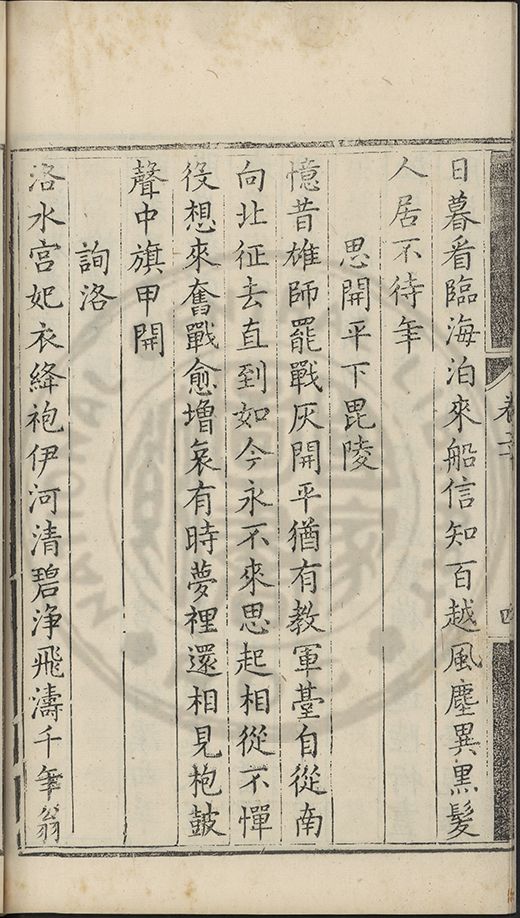 日暮看臨海泊來船信知百越風塵異黒髮
人居不待年
思開平下毘陵
憶昔雄師罷戰灰開平猶有教軍臺自從南
向北征去直到如今永不來思起相從不憚
役想來奮戰愈增哀有時夢裡還相見枹鼓
聲中旗甲開
詢洛
洛水宮妃衣絳袍伊河清碧浄飛濤千年翁